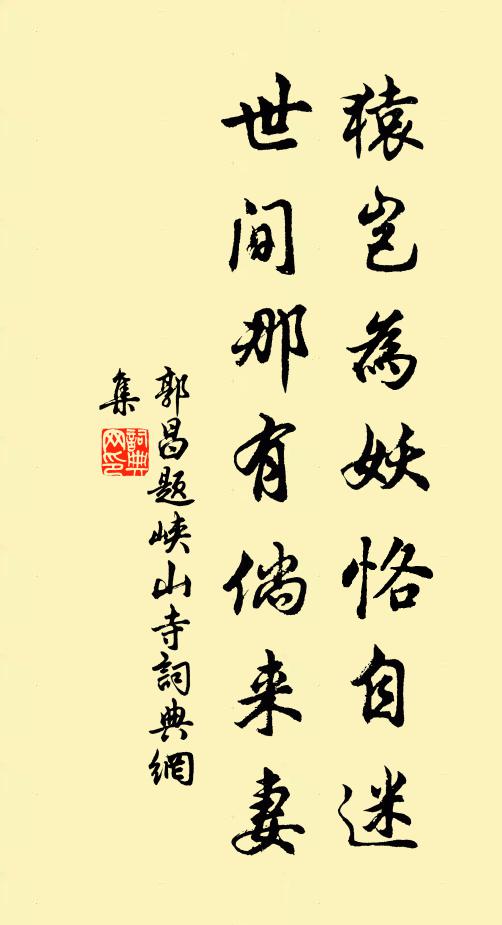 猿岂為妖恪自迷
世间那有倘来妻
郭昌题峡山寺詞典網
集
詞典
网印